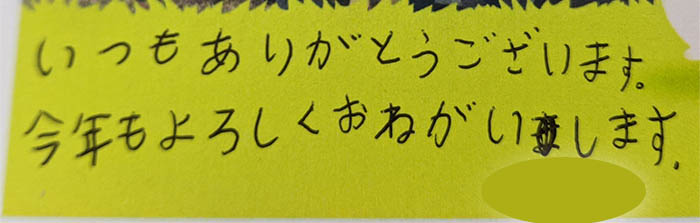 いつもありがとうございます。
今年もよろしくおねがいします。